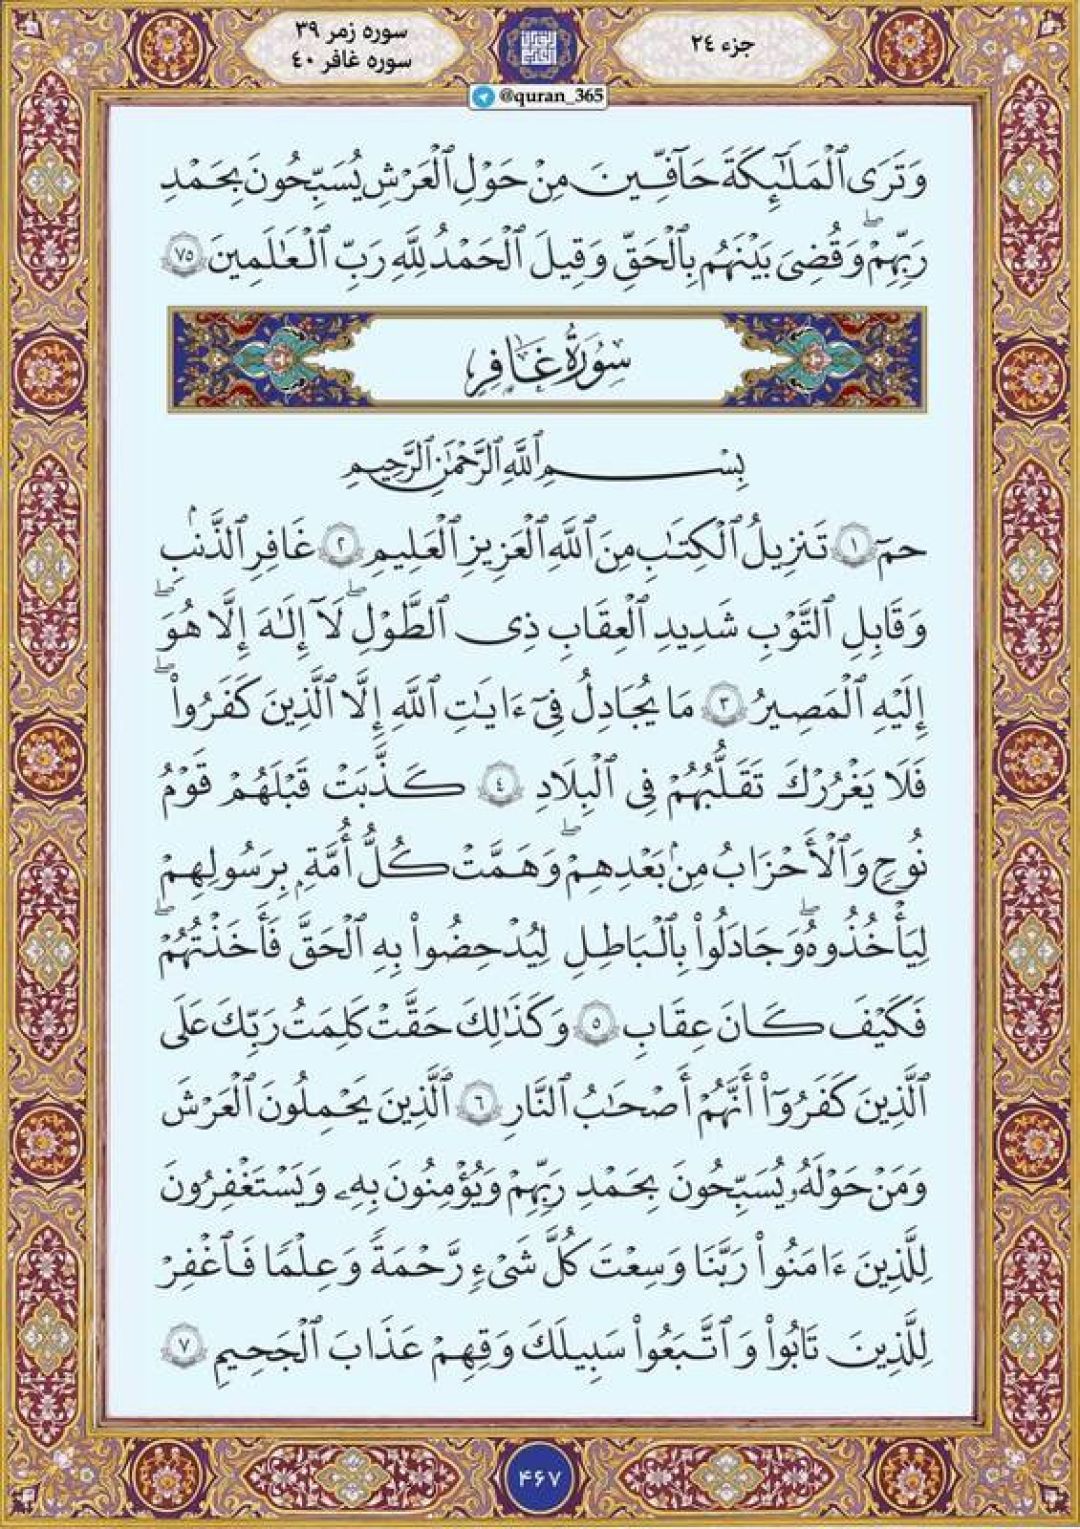 سوره زمر ۳۹
سوره غافر ۴۰
جزء ۲۴
@quran_365
وَتَرَى ٱلْمَلَـٰٓئِكَةَ حَآفِّينَ مِنْ حَوْلِ ٱلْعَرْشِ يُسَبِّحُونَ بِحَمْدِ
رَبِّهِمْ ۖ وَقُضِىَ بَيْنَهُم بِٱلْحَقِّ وَقِيلَ ٱلْحَمْدُ لِلَّهِ رَبِّ ٱلْعَـٰلَمِينَ ۷۵
سُورَةُ غَافِرٍ
بِسْمِ ٱللَّهِ ٱلرَّحْمَـٰنِ ٱلرَّحِيمِ
حمٓ ۱ تَنزِيلُ ٱلْكِتَـٰبِ مِنَ ٱللَّهِ ٱلْعَزِيزِ ٱلْعَلِيمِ ۲ غَافِرِ ٱلذَّنۢبِ
وَقَابِلِ ٱلتَّوْبِ شَدِيدِ ٱلْعِقَابِ ذِى ٱلطَّوْلِ ۖ لَآ إِلَـٰهَ إِلَّا هُوَ ۖ
إِلَيْهِ ٱلْمَصِيرُ ۳ مَا يُجَادِلُ فِىٓ ءَايَـٰتِ ٱللَّهِ إِلَّا ٱلَّذِينَ كَفَرُوا۟ ۖ
فَلَا يَغْرُرْكَ تَقَلُّبُهُمْ فِى ٱلْبِلَادِ ٤ كَذَّبَتْ قَبْلَهُمْ قَوْمُ
نُوحٍ وَٱلْأَحْزَابُ مِنۢ بَعْدِهِمْ ۖ وَهَمَّتْ كُلُّ أُمَّةٍۭ بِرَسُولِهِمْ
لِيَأْخُذُوهُ ۖ وَجَادَلُوا۟ بِٱلْبَاطِلِ لِيُدْحِضُوا۟ بِهِ ٱلْحَقَّ فَأَخَذْتُهُمْ ۖ
فَكَيْفَ كَانَ عِقَابِ ٥ وَكَذَٰلِكَ حَقَّتْ كَلِمَتُ رَبِّكَ عَلَى
ٱلَّذِينَ كَفَرُوٓا۟ أَنَّهُمْ أَصْحَـٰبُ ٱلنَّارِ ٦ ٱلَّذِينَ يَحْمِلُونَ ٱلْعَرْشَ
وَمَنْ حَوْلَهُۥ يُسَبِّحُونَ بِحَمْدِ رَبِّهِمْ وَيُؤْمِنُونَ بِهِۦ وَيَسْتَغْفِرُونَ
لِلَّذِينَ ءَامَنُوا۟ رَبَّنَا وَسِعْتَ كُلَّ شَىْءٍ رَّحْمَةً وَعِلْمًا فَٱغْفِرْ
لِلَّذِينَ تَابُوا۟ وَٱتَّبَعُوا۟ سَبِيلَكَ وَقِهِمْ عَذَابَ ٱلْجَحِيمِ ۷
۴۶۷